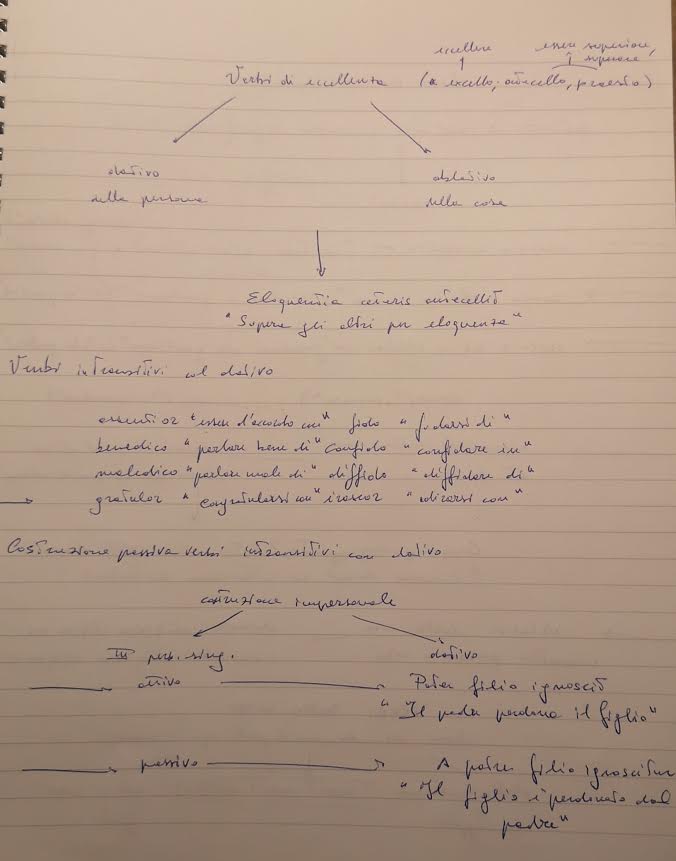 eccellere essere superiore,
superare
Verbi di eccellenza (excello, antecello, praesto)
dativo ablativo
della persona della cosa
Eloquentia ceteris antecellit
"Supera gli altri per eloquenza"
Verbi intransitivi col dativo
assentior "essere d'accordo con" fido "fidarsi di"
benedico "parlare bene di" confido "confidare in"
maledico "parlare male di" diffido "diffidare di"
gratulor "congratularsi con" irascor "adirarsi con"
Costruzione passiva verbi intransitivi con dativo
costruzione impersonale
III pers. sing. dativo
attivo Pater filio ignoscit
"Il padre perdona il figlio"
passivo A patre filio ignoscitur
"Il figlio è perdonato dal
padre"